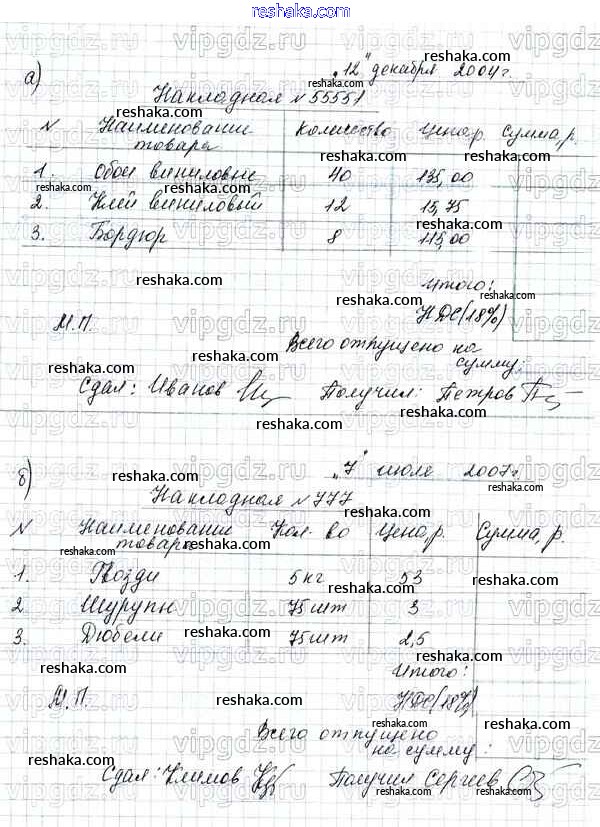 reshaka.com
а) „12" декабря 2004 г.
Накладная № 55551
N Наименовании товара Количество Цена,р. Сумма,р.
1. Обои виниловые 40 135,00
2. Клей виниловый 12 15,75
3. Бордюр 8 115,00
Итого:
М.П. НДС(18%)
Всего отпущено на
сумму:
Сдал: Иванов Получил: Петров
б) „7" июле 2007г.
Накладная № 777
N Наименовании товара Кол. во Цена,р. Сумма,р.
1. Гвозди 5 кг 53
2. Шурупы 75 шт 3
3. Дюбели 75 шт 2,5
Итого:
М.П. НДС(18%)
Всего отпущено
на сумму:
Сдал: Климов Получил Сергеев
reshaka.com